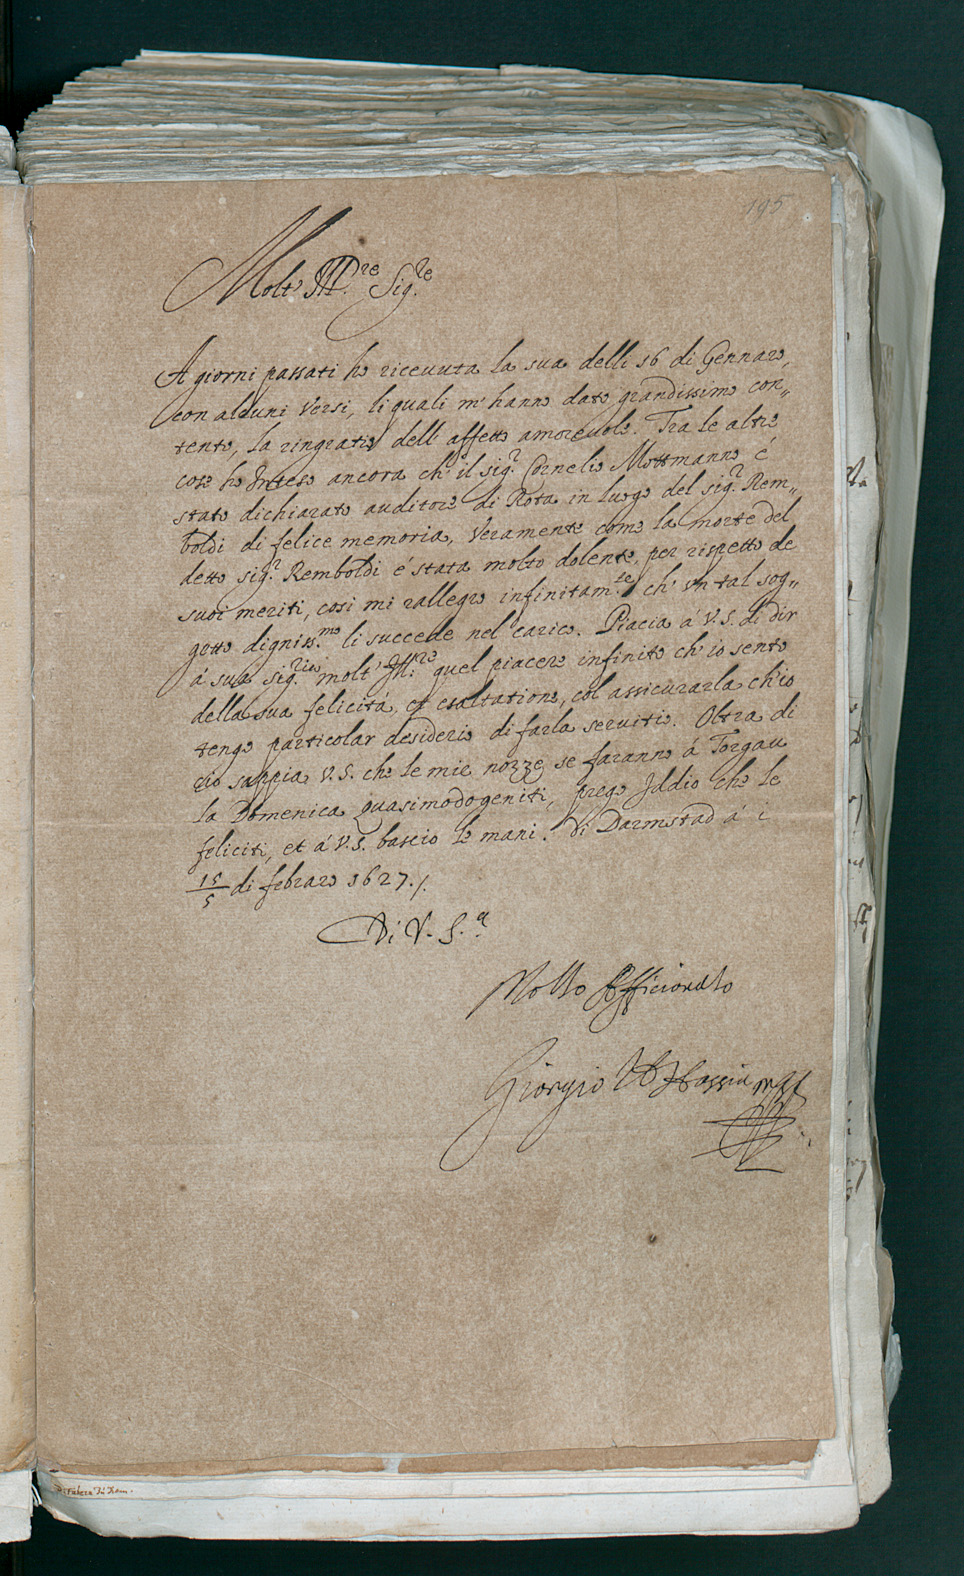 195
Molt' Ill.re Sig.re
A giorni passati ho ricevuta la sua delli 16 di Gennaro,
con alcuni versi, li quali m'hanno dato grandissimo con„
tento, la ringratio dell' affetto amorevole. Tra le altre
cose ho Inteso ancora ch' il sig.r Cornelio Mottmanno é
stato dichiarato auditore di Rota in luogo del sig.r Rem„
boldi di felice memoria, Veramente come la morte del
detto sig.r Remboldi é stata molto dolente, per rispetto de
suoi meriti, cosi mi rallegro infinitam.te ch' vn tal sog„
getto digniss.mo li succede nel carico. Piacia á V.S. di dir
á sua sig.ria molt' Ill.re quel piacere infinito ch' io sento
della sua felicitá, et esaltatione, col assicurarla ch'io
tengo particolar desiderio di farla servitio. Oltra di
cio sappia V.S. che le mie nozze se faranno á Torgau
la Domenica Quasimodogeniti, prego Iddio che le
feliciti, et á V.S. bascio le mani. Di Darmstad á i
15/5 di febraro 1627./.
Di V. S.a
Molto Afficionato
Giorgio Hassia